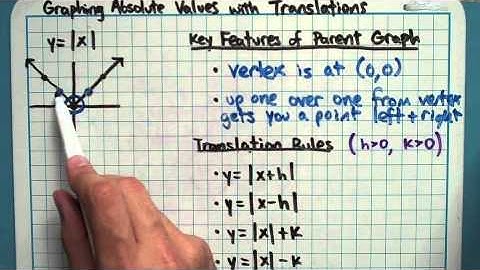 Graphing Absolute Values with Translations
y=|x|
Key Features of Parent Graph
• vertex is at (0,0)
• up one over one from vertex
gets you a point left + right
Translation Rules (h>0, k>0)
• y=|x+h|
• y=|x-h|
• y=|x|+k
• y=|x|-k